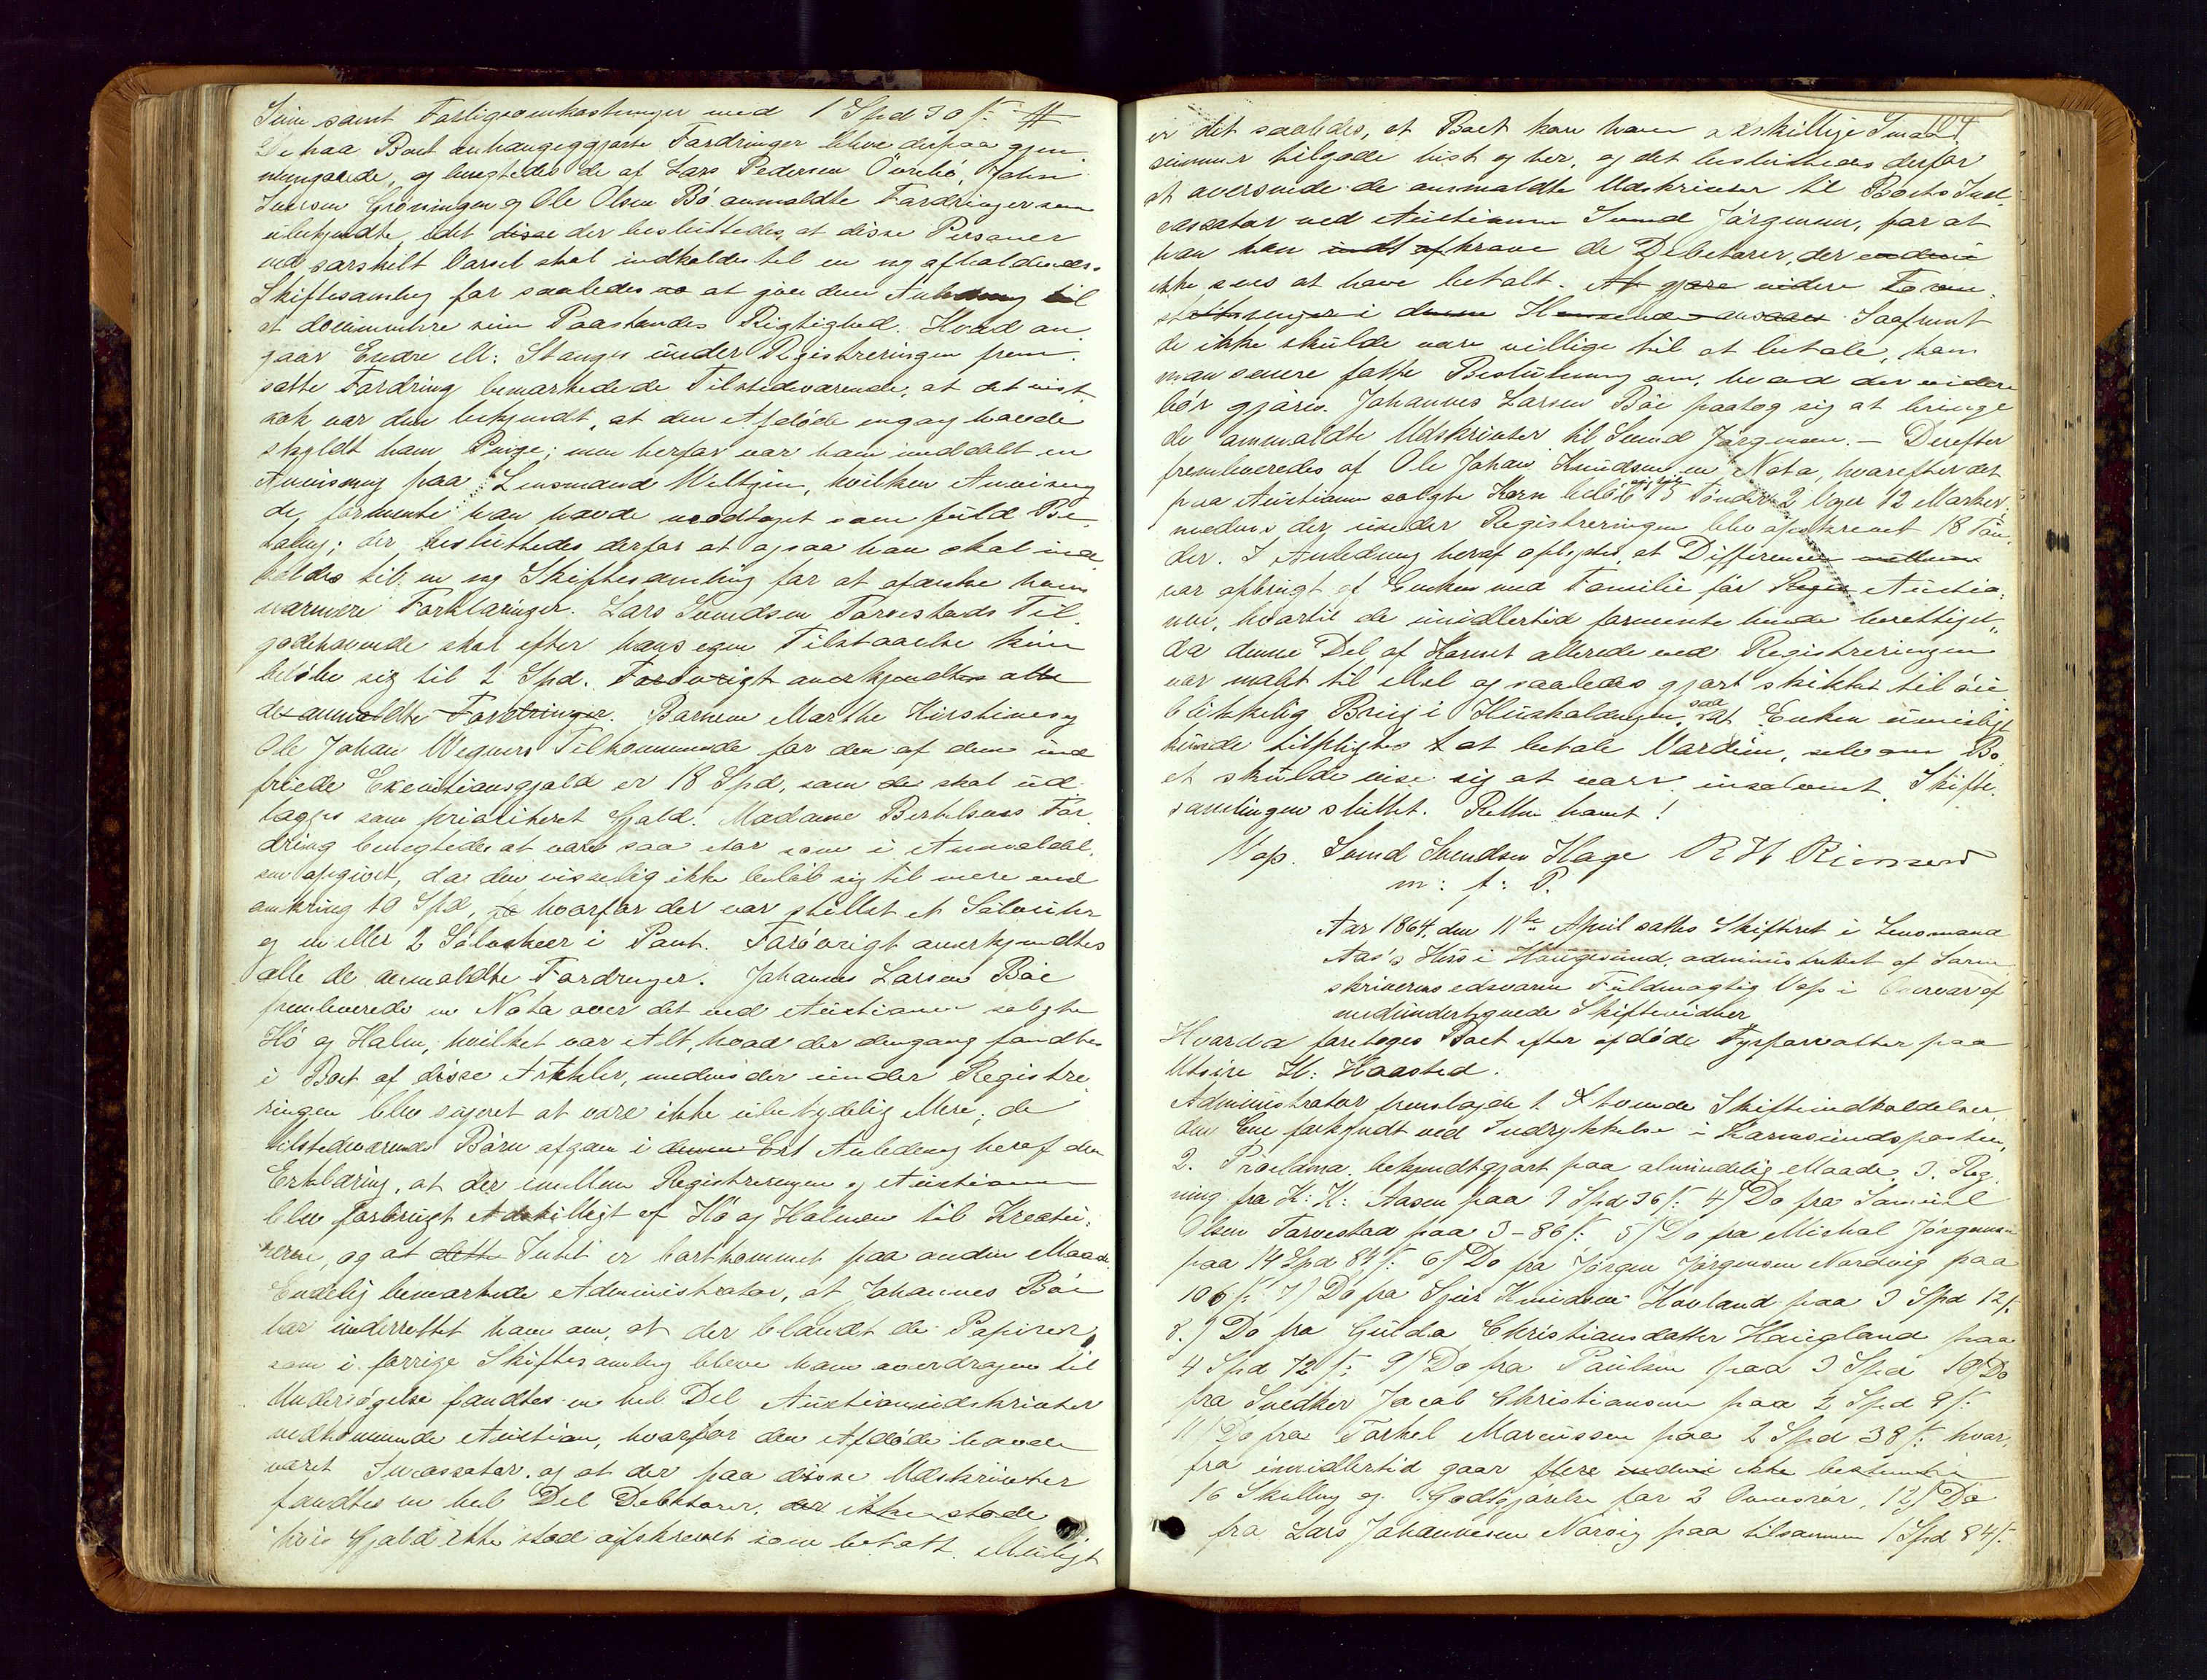 Sum samt Forligsomkostninger med 1 Spd 30 ſ.
De paa Boet anhængiggjorte Fordringer bleve derpaa gjen-
nemgaaede, og benegtedes de af Lars Pedersen Öurebö, John
Iversen Gröningen og Ole Olsen Bö anmældte Fordringer som
ubekjendte, idet disse der besluttedes, at disse Personer
ved særskilt Varsel skal indkaldes til en ny afholdendes
Skiftesamling for saaledes at give dem Anledning til
at documentere sin Paastandes Rigtighed. Hvad an-
gaar Endre M: Stanges under Registreringen frem-
satte Fordring bemærkede de Tilstedværende, at det vist
nok var dem bekjendt, at den Afdöde engang havde
skyldt ham Penge; men herfor var ham meddelt en
Anvisning paa Lensmand Weltzin, hvilken Anvisning
de formente han havde modtaget som fuld Be-
taling; der besluttedes derfor at ogsaa han skal ind
kaldes til en ny Skiftesamling for at afæske ham
nærmere Forklaringer. Lars Svendsen Torvestads Til-
godehavende skal efter hans egen Tilstaaelse kun
belöbe sig til 2 Spd. Forövrigt anerkjendtes alle
de anmeldte Fordringer. Barnene Marthe Kirstines og
Ole Johan Wegners Tilkommende for den af dem ind
friede Executionsgjæld er 18 Spd, som de skal ud-
lægges som prioriteret Gjæld. Madame Bertelsens For-
dring benegtedes at være saa stor som i Anmeldel-
sen opgivet, da den visselig ikke belöb sig til mere end
omkring 10 Spd, hvorfor der var stillet et Sölvuhr
og en eller 2 Sölvskeer i Pant. Forövrigt anerkjendtes
alle de anmældte Fordringer. Johannes Larsen Böe
fremleverede en Nota over det ved Auctionen solgte
Hö og Halm, hvilket var Alt, hvad der dengang fandtes
i Boet af disse Artikler, medens der under Registre-
ringen blev opgivet at være ikke ubetydelig Mere; de
tilstedværende Börn afgav i denne Ert Anledning heraf den
Erklæring, at der imellem Registreringen og Auctionen
blev forbrugt Adskilligt af Hö og Halmen til Kreatu-
rerne, og at dette Intet er bortkommet paa anden Maade.
Endelig bemærkede Administrator, at Johannes Böe
har underrettet ham om, at der blandt de Papirer,
som i forrige Skiftesamling bleve ham overdragen til
Undersögelse fandtes en hel Del Auctionsudskrivter
vedkommende Auction, hvorfor den Afdöde havde
været Incassator, og at der paa disse Udskrivter
fandtes en hel Del Debitorer, der ikke stode
hvis Gjæld ikke stod afskrevet som betalt. Muligt
104
er det saaledes, at Boet kan have adskillige Smaa
summer tilgode hist og her, og det besluttedes derfor
at oversende de anmældte Udskrivter til Boets In-
cassator ved Auctionen Svend Jörgensen, for at
han kan indt afkræve de Debitorer, der endnu
ikke sees at have betalt. At gjöre videre Foran-
staltninger i denne Saafremt
de ikke skulde være villige til at betale, kan
man senere fatte Beslutning om, hvad der videre
bör gjöres. Johannes Larsen Böe paatog sig at bringe
de anmældte Udskrivter til Svend Jörgensen. – Derefter
fremleveredes af Ole Johan Knudsen en Nota, hvorefter det
paa Auctionen solgte Korn belöb sig til 15 Tönder 2 Voger 12 Marker,
medens der under Registreringen blev opskrevet 18 Tön-
der. I Anledning heraf oplystes, at Differencen mellem
var opbrugt af Enken med Familie för Regis Auctio-
nen, hvortil de imidlertid formente hende berettiget,
da denne Del af Kornet allerede ved Registreringen
var malet til Mel og saaledes gjort skikket til öie
blikkelig Brug i Husholdningen, saa at Enken umuligt
kunde tilpligtes at betale Værdien, selv om Bo-
et skulde vise sig at være insolvent. Skifte-
samlingen sluttet. Retten hævet!
Vop. Svend Svendsen Hage R H Rimsen
m: f: P.
Aar 1864, den 11te April sattes Skifteret i Lensmand
Aas's Hus i Haugesund, administreret af Soren
skriverens edsvorne Fuldmægtig Vop i Overvær af
medundertegnede Skiftevidner
Hvorda foretoges Boet efter afdöde Fyrforvalter paa
Utsire H: Haasted.
Administrator fremlagde 1. tvende Skifteindkaldelser
den Ene forkyndt ved Indrykkelse i Karmsundsposten,
2. Proclama bekjendtgjort paa almindelig Maade, 3. Reg-
ning fra K: K: Aasen paa 3 Spd 36 ſ. 4) Do fra Samuel
Olsen Torvestad paa 3–86 ſ. 5) Do fra Mickal Jörgensen
paa 14 Spd 84 ſ. 6) Do fra Jörgen Jörgensen Nordvig paa
106 ſ. 7) Do fra Sjur Knudsen Hovland paa 3 Spd 12 ſ.
8.) Do fra Gulda Christiansdatter Haugland paa
4 Spd 72 ſ. 9) Do fra Paulsen paa 3 Spd 10) Do
fra Snedker Jacob Christiansen paa 2 Spd 9 ſ.
11 Do fra Torkel Marcussen paa 2 Spd 38 ſ. hvor-
fra imidlertid gaar flere endnu ikke bestemte
16 Skilling og Godtgjörelse for 2 12) Do
fra Lars Johannesen Norvig paa tilsammen 1 Spd 84 ſ.